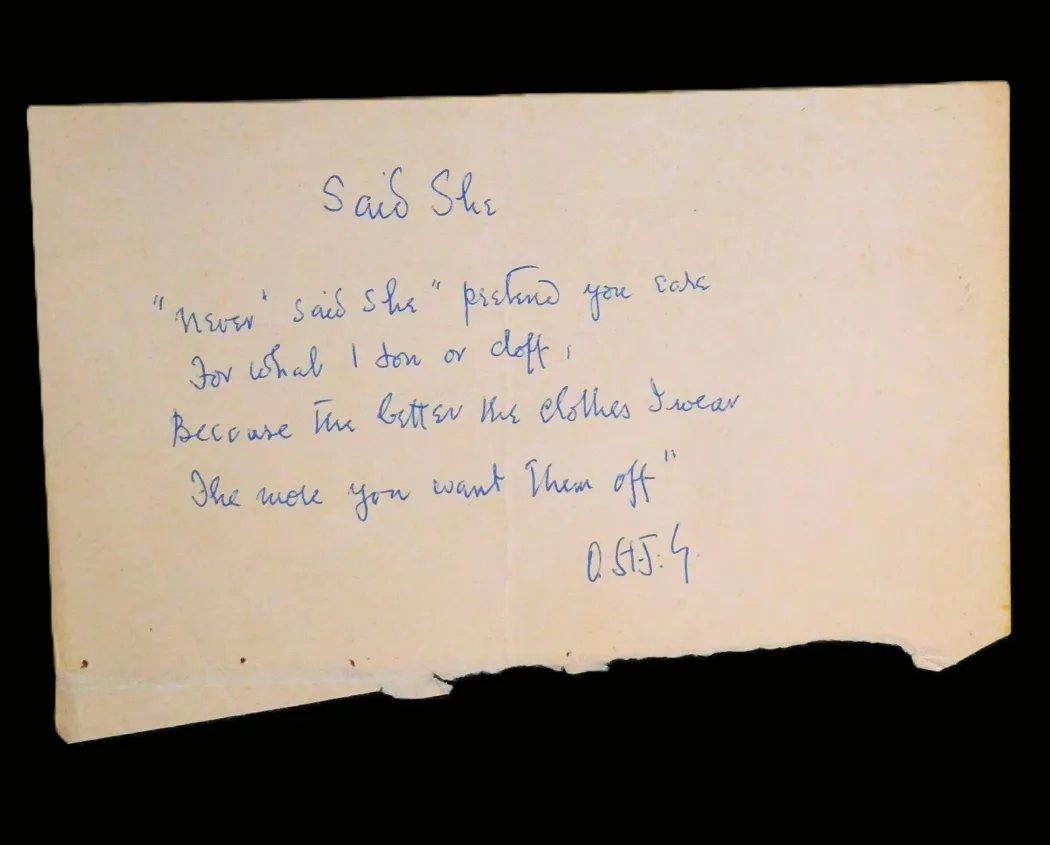 Said She
"Never' said she "pretend you care
For what I don or doff,
Because the better the clothes I wear
The more you want them off"
O. St. J. G.